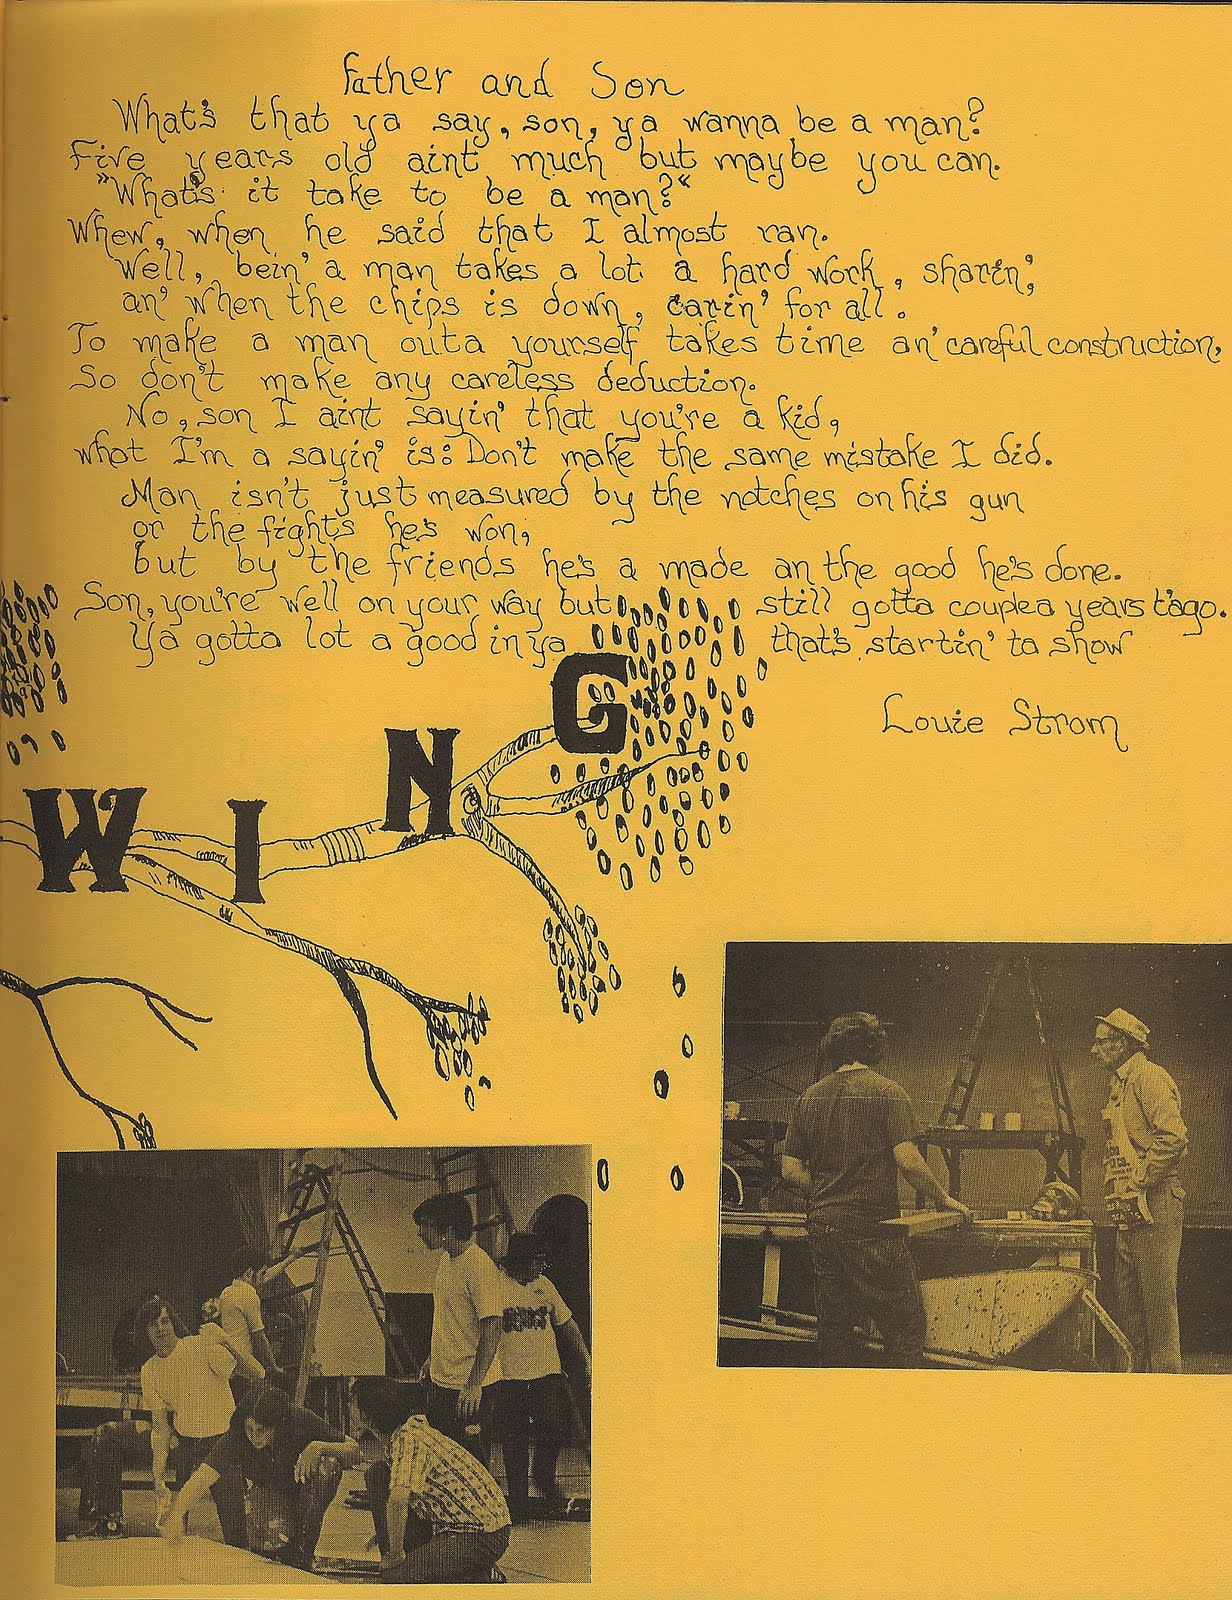 Father and Son
What's that ya say, son, ya wanna be a man?
Five years old aint much but maybe you can.
"What's it take to be a man?"
Whew, when he said that I almost ran.
Well, bein' a man takes a lot a hard work, sharin',
an' when the chips is down, carin' for all.
To make a man outa yourself takes time an' careful construction,
So don't make any careless deduction.
No, son I aint sayin' that you're a kid,
what I'm a sayin' is: Don't make the same mistake I did.
Man isn't just measured by the notches on his gun
or the fights he's won,
but by the friends he's a made an the good he's done.
Son, you're well on your way but still gotta couplea years t'ago.
Ya gotta lot a good in ya that's startin' ta show
Louie Strom
WING